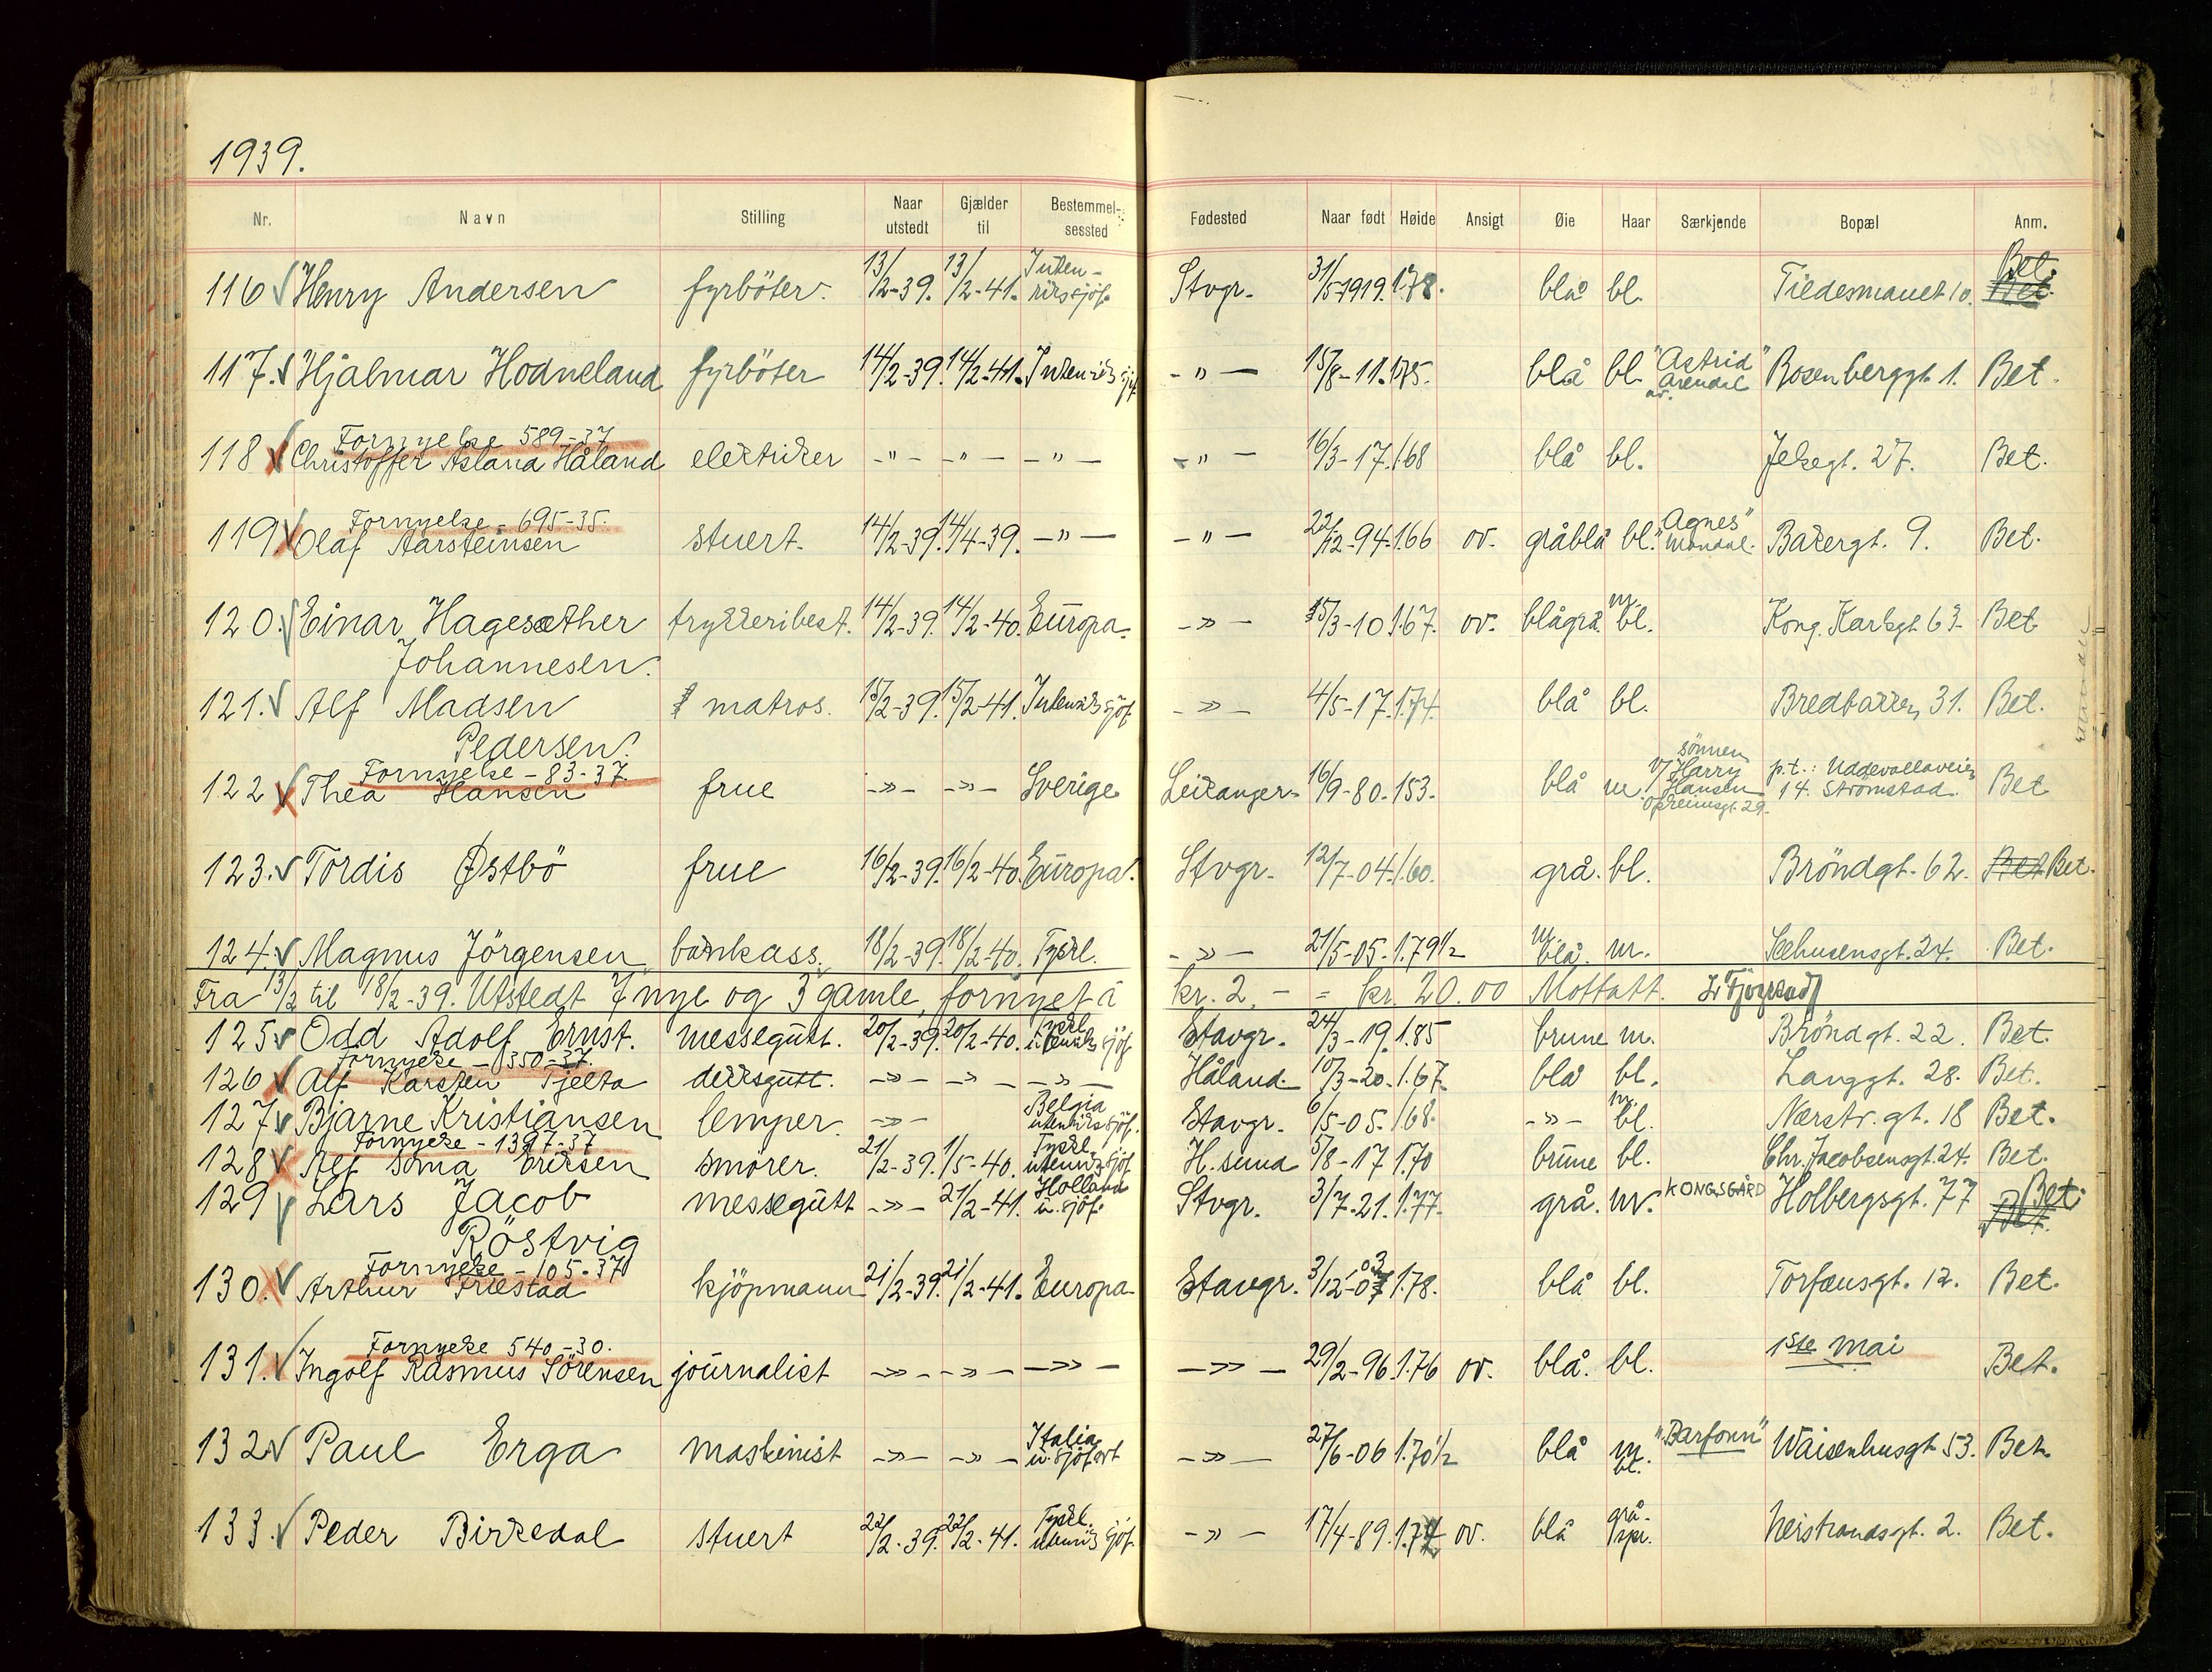 1939.
Nr. Navn Stilling Naar utstedt Gjælder til Bestemmelsessted Fødested Naar født Høide Ansigt Øie Haar Særkjende Bopæl Anm.
116 Henry Andersen fyrböter. 13/2-39. 13/2-41. Utenrikssjöf. Stvgr. 31/5-1919. 1.78. blå bl. Tiedesmanet 10. Bet. Bet.
117. Hjalmar Hodneland fyrböter 14/2-39. 14/2-41. Utenrikssjöf. -"- 15/8-11. 1.75. blå bl. "Astrid" av. Arendal Rosenberggt. 1. Bet.
Fornyelse 589-37
118 Christoffer Asland Håland elektriker -"- -"- -"- -"- 16/3-17. 1.68 blå bl. Jelsegt. 27. Bet.
Fornyelse - 695-35.
119 Olaf Aarsteinsen stuert. 14/2-39. 14/4-39. -"- -"- 22/12-94. 1.66 ov. gråblå bl. "Agnes" Mandal. Bakergt. 9. Bet.
120. Einar Hagesæther trykkeribest. 14/2-39. 14/2-40. Europa. -"- 15/3-10 1.67. ov. blågrå. m. bl. Kong. Karlsgt. 63. Bet
Johannesen.
121. Alf Madsen matros. 15/2-39. 15/2-41. Utenrikssjöf. -"- 4/5-17. 1.74. blå bl. Bredbakken 31. Bet.
Pedersen.
Fornyelse - 83-37.
122 Thea Hansen frue -"- -"- Sverige Leikanger 16/9-80. 1.53. blå m. sönnen v/Harry Hansen Opreimsgt. 29. p.t.: Uddevallaveien 14. Strömstad. Bet
123. Tordis Østbö frue 16/2-39. 16/2-40. Europa. Stvgr. 12/7-04. 1.60. grå. bl. Bröndgt. 62. Bet Bet.
124. Magnus Jörgensen bankass. 18/2-39. 18/2-40. Tyskl. -"- 21/5-05. 1.79 1/2 m. blå. m. Seehusensgt. 24. Bet.
Fra 13/2 til 18/2-39. Utstedt 7 nye og 3 gamle, fornyet á kr. 2,- = kr. 20.00 Mottatt.
125 Odd Adolf Ernst. messegutt. 20/2-39. 20/2-40. Tyskl. utenriks sjöf. Stavgr. 24/3-19. 1.85 brune m. Bröndgt. 22. Bet.
Fornyelse - 1350-37.
126 Alf Karsten Tjelta dekksgutt. -"- -"- -"- Håland. 10/3-20. 1.67. blå bl. Langgt. 28. Bet.
127 Bjarne Kristiansen lemper. -"- Belgia utenrikssjöf. Stavgr. 6/5-05. 1.68. -"- m. bl. Nerstr. gt. 18 Bet.
Fornyelse - 1397-37
128 Alf Soma Eriksen smörer. 21/2-39. 1/5-40. Tyskl. utenriks sjöf. H.sund 5/8-17 1.70 brune bl. Chr. Jacobsensgt. 24. Bet.
129 Lars Jacob messegutt -"- 21/2-41. Holland u. sjöf. Stvgr. 3/7-21. 1.77. grå. m. KONGSGÅRD Holbergsgt. 77 Bet. Bet.
Röstvig
Fornyelse - 105-37
130. Arthur Friestad kjöpmann 21/2-39. 21/2-41. Europa Stavgr. 3/12-03 1.78. blå bl. Torfæusgt. 12. Bet.
Fornyelse 540-30.
131. Ingolf Rasmus Sörensen journalist -"- -"- -"- -"- 29/2-96. 1.76 ov. blå. bl. 1ste mai Bet.
132 Paul Erga maskinist -"- -"- Italia u. sjöfart -"- 27/6-06 1.70 1/2 blå m. bl. "Barfonn" Waisenhusgt 53. Bet.
133. Peder Birkedal stuert 22/2-39. 22/2-41. Tyskl. utenriks sjöf. -"- 17/4-89. 1.74 ov. blå grå-spr. Neistrandsgt. 2. Bet.